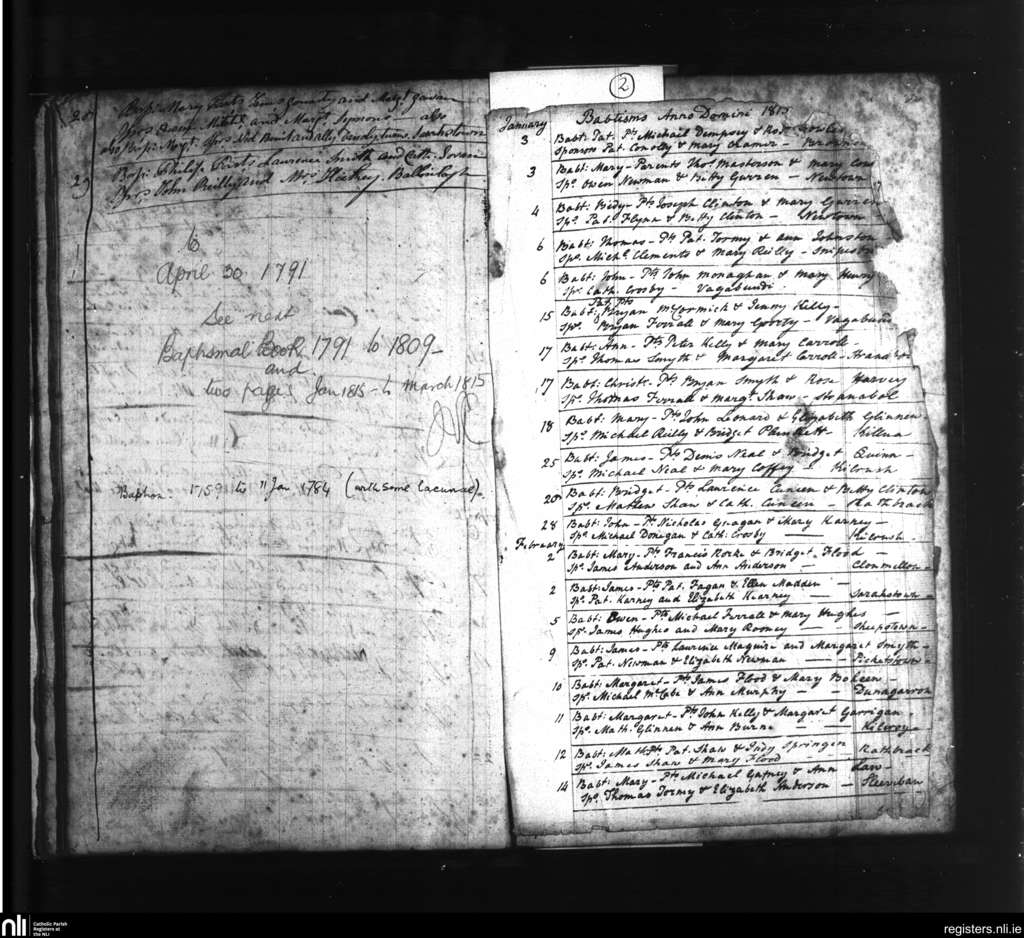 28
Bapt: Mary
29 Bapt: Philip. Parts Laurence Smith and Cath:
Sprs. John Reilly and Mrs.
to
April 30 1791
See next
Baptismal Book 1791 to 1809-
and
two pages Jan 1815 - to March 1815
Baptism: 1759 to 11 Jan 1784 (with some lacunae).
2
Baptisms Anno Domini 1815
January
3 Babt: Pat. Pts Michael Dempsey & Rose
Sponsors Pat. Conolly & Mary
3 Babt: Mary - Parents Thos. Masterson & Mary
Sps. Owen Newman & Betty Gurren - Newtown
4 Babt: Bidy - Pts Joseph Clinton & Mary Gurren
Sps. Pat. Flynn & Betty Clinton - Newtown
6 Babt: Thomas - Pts Pat. Tormy & Ann Johnston
Sps. Michl. Clements & Mary Reilly -
6 Babt: John - Pts John Monaghan & Mary Henry
Sps. Cath. Crosby - Vagabundi.
Pat. Pts
15 Babt: Bryan McCormick & Jenny Kelly -
Sps. Bryan Ferrall & Mary - Vagabundi
17 Babt: Ann - Pts Peter Kelly & Mary Carroll -
Sps. Thomas Smyth & Margaret Carroll -
17 Babt: Christr. Pts Bryan Smyth & Rose Harvey
Sps. Thomas Ferrall & Margt. Shaw - Stranabol
18 Babt: Mary - Pts John Leonard & Elizabeth Glinnen
Sps. Michael Reilly & Bridget Plunkett - Killua
25 Babt: James - Pts Denis Neal & Bridget Quinn -
Sps. Michael Neal & Mary Coffey - Kilrush
Babt: Bridget - Pts Laurence Cuneen & Betty Clinton
Sps. Mathew Shaw & Cath. Cuneen - Rathbrack
28 Babt: John - Pts Nicholas Geagan & Mary Karney -
Sps. Michael Donegan & Cath: Crosby - Kilrush -
February
2 Babt: Mary - Pts Francis Rorke & Bridget Flood -
Sps. James Anderson and Ann Anderson - Clonmellon -
2 Babt: James - Pts Pat. Fagan & Ellen Madden -
Sps. Pat. Karney and Elizabeth Kearney - Sarahstown -
5 Babt: Owen - Pts Michael Ferrall & Mary Hughes -
Sps. James Hughes and Mary Rooney - Sheepstown -
9 Babt: James - Pts Laurence Maguire and Margaret Smyth -
Sps. Pat. Newman & Elizabeth Newman - Picketstown -
10 Babt: Margaret - Pts James Flood & Mary Boheen -
Sps. Michael McCabe & Ann Murphy - - Dunagarron
11 Babt: Margaret - Pts John Kelly & Margaret Garrigan -
Sps. Math. Glinnen & Ann Burne - Kilvroy -
12 Babt: Math Pts Pat. Shaw & Judy Springer Rathbrack
Sps. James Shaw & Mary Flood -
14 Babt: Mary - Pts Michael Gafney & Ann Law -
Sps. Thomas Tormy & Elizabeth Anderson -
nli Catholic Parish
Registers at
the NLI
registers.nli.ie